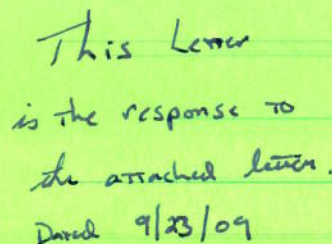 This Letter
is the response to
the attached letter.
Dated 9/23/09